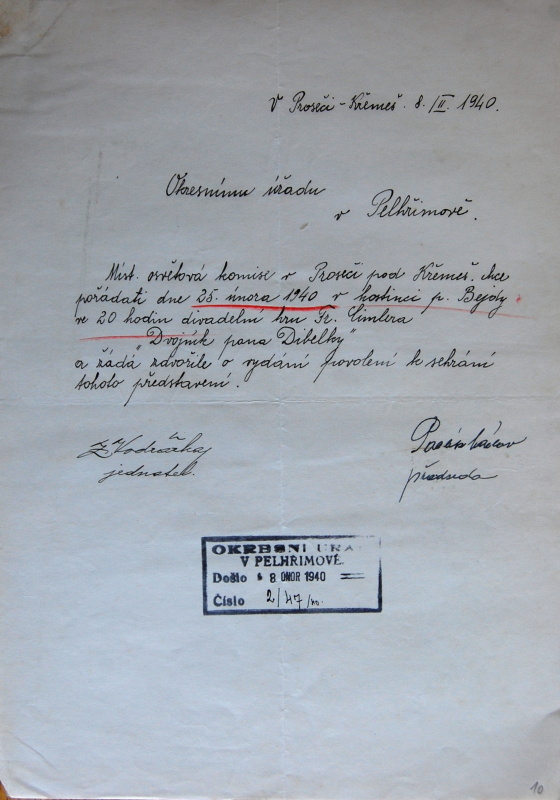 V Proseči - Křemeš. 8./II. 1940.
Okresnímu úřadu
v Pelhřimově.
Míst. osvětová komise v Proseči pod Křemeš. chce
pořádati dne 25. února 1940 v hostinci p. Bejdy
ve 20 hodin divadelní hru Fr. Cimlera
"Dvojník pana Dibelky"
a žádá zdvořile o vydání povolení k sehrání
tohoto představení.
jednatel.
předseda
OKRESNÍ ÚŘA
V PELHŘIMOVĚ.
Došlo 8 ÚNOR 1940
Číslo 2/47/
10